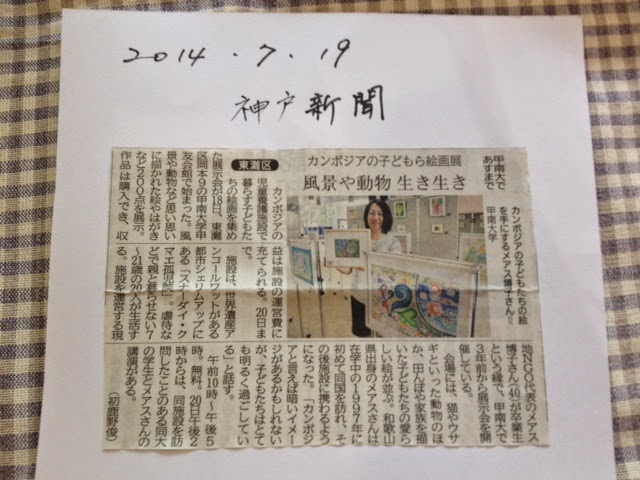 2014.7.19
神戸新聞
甲南大で
あすまで
カンボジアの子どもら絵画展
風景や動物 生き生き
カンボジアの子どもたちの絵
を手にするメアス博子さん＝
甲南大学
東灘区
カンボジアの
児童養護施設で
暮らす子どもた
ちの絵画を集め
た展示会が18日、東灘
区岡本9の甲南大学甲
友会館で始まった。風
景や動物など思い思い
に描かれた絵やはがき
など200点を展示。
作品は購入でき、収
益は施設の運営費に
充てられる。20日ま
で。
施設は、世界遺産ア
ンコールワットがある
都市シェムリアップに
ある「スナーダイ・ク
マエ孤児院」。虐待な
どで親と暮らせない7
〜21歳の20人が生活す
る。施設を運営する現
地NGO代表のメアス
博子さん(40)が卒業生
という縁で、甲南大で
3年前から展示会を開
催している。
会場には、猫やウサ
ギといった動物のほ
か、田んぼや家族を描
いた子どもたちの愛ら
しい絵が並ぶ。和歌山
県出身のメアスさんは
在学中の1997年に
初めて同国を訪れ、そ
の後施設に携わるよう
になった。「カンボジ
アと言えば暗いイメー
ジがあるかもしれない
が、子どもたちはとて
も明るく過ごしてい
る」と話す。
午前10時〜午後5
時。無料。20日午後2
時からは、同施設を訪
問したことのある同大
の学生とメアスさんの
講演がある。
(初鹿野俊)